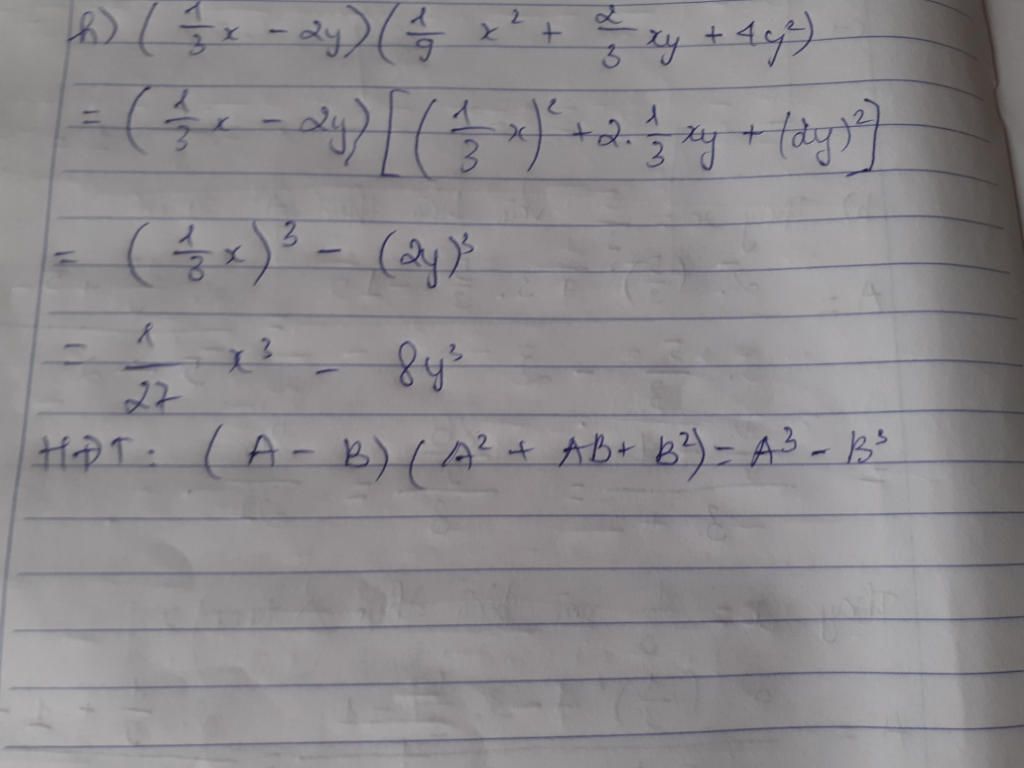 h) (1/3 x - 2y)(1/9 x² + 2/3 xy + 4y²)
= (1/3 x - 2y)[(1/3 x)² + 2. 1/3 xy + (2y)²]
= (1/3 x)³ - (2y)³
= 1/27 x³ - 8y³
HĐT: (A - B)(A² + AB + B²) = A³ - B³